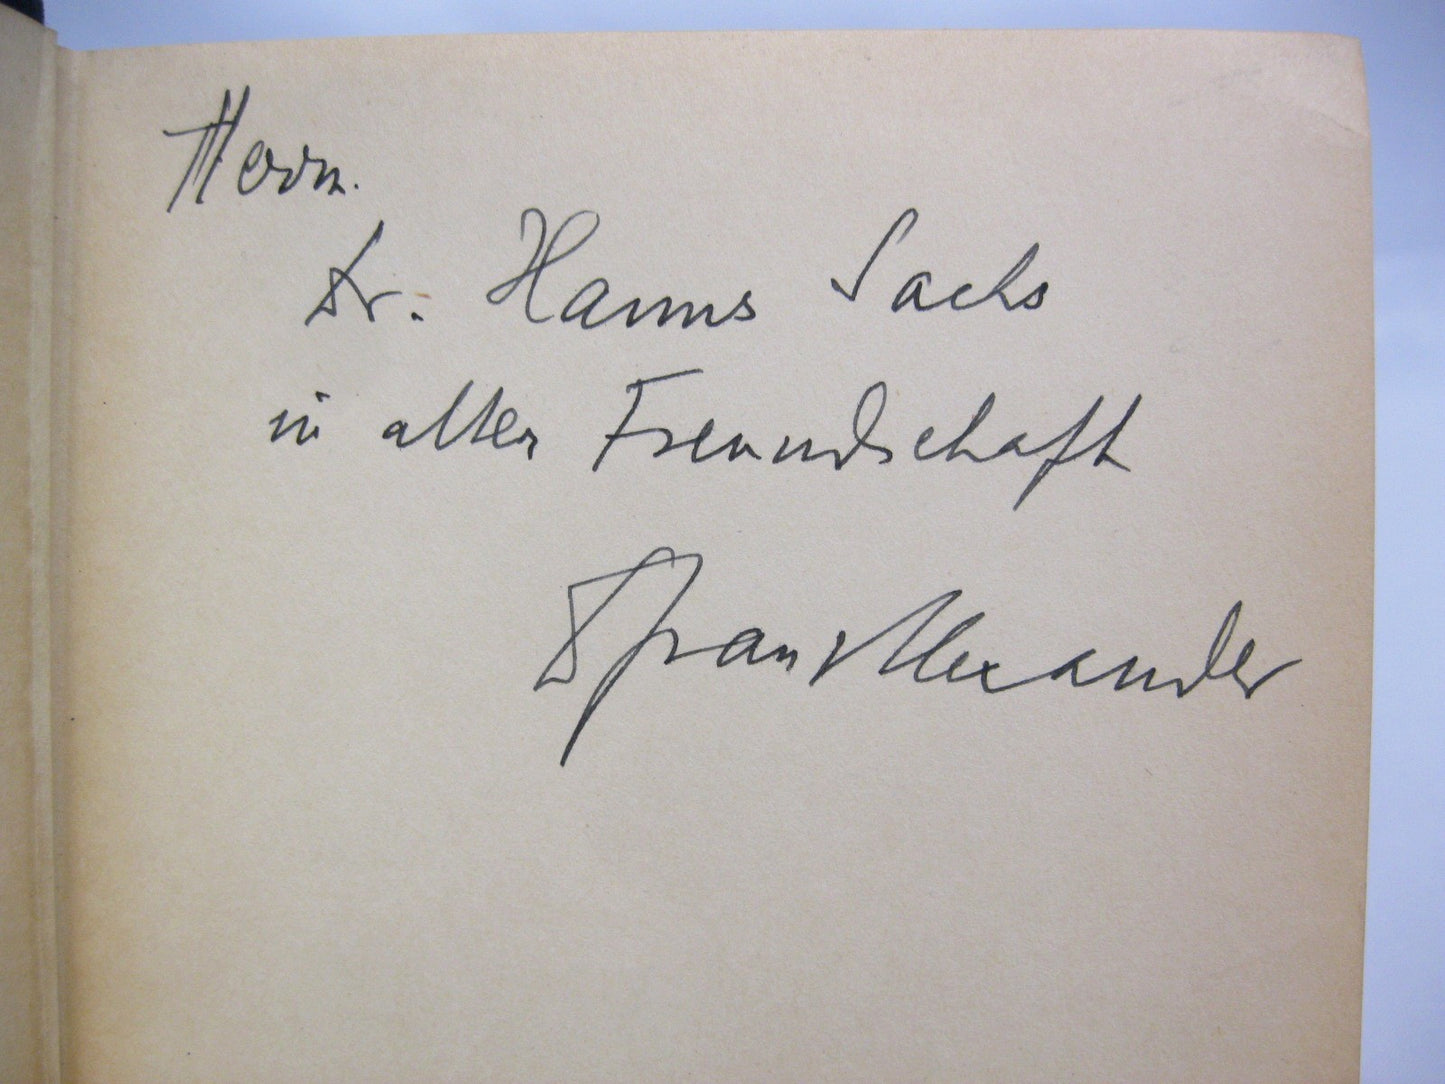 Herrn.
Dr. Hanns Sachs
in alter Freundschaft
Franz Alexander